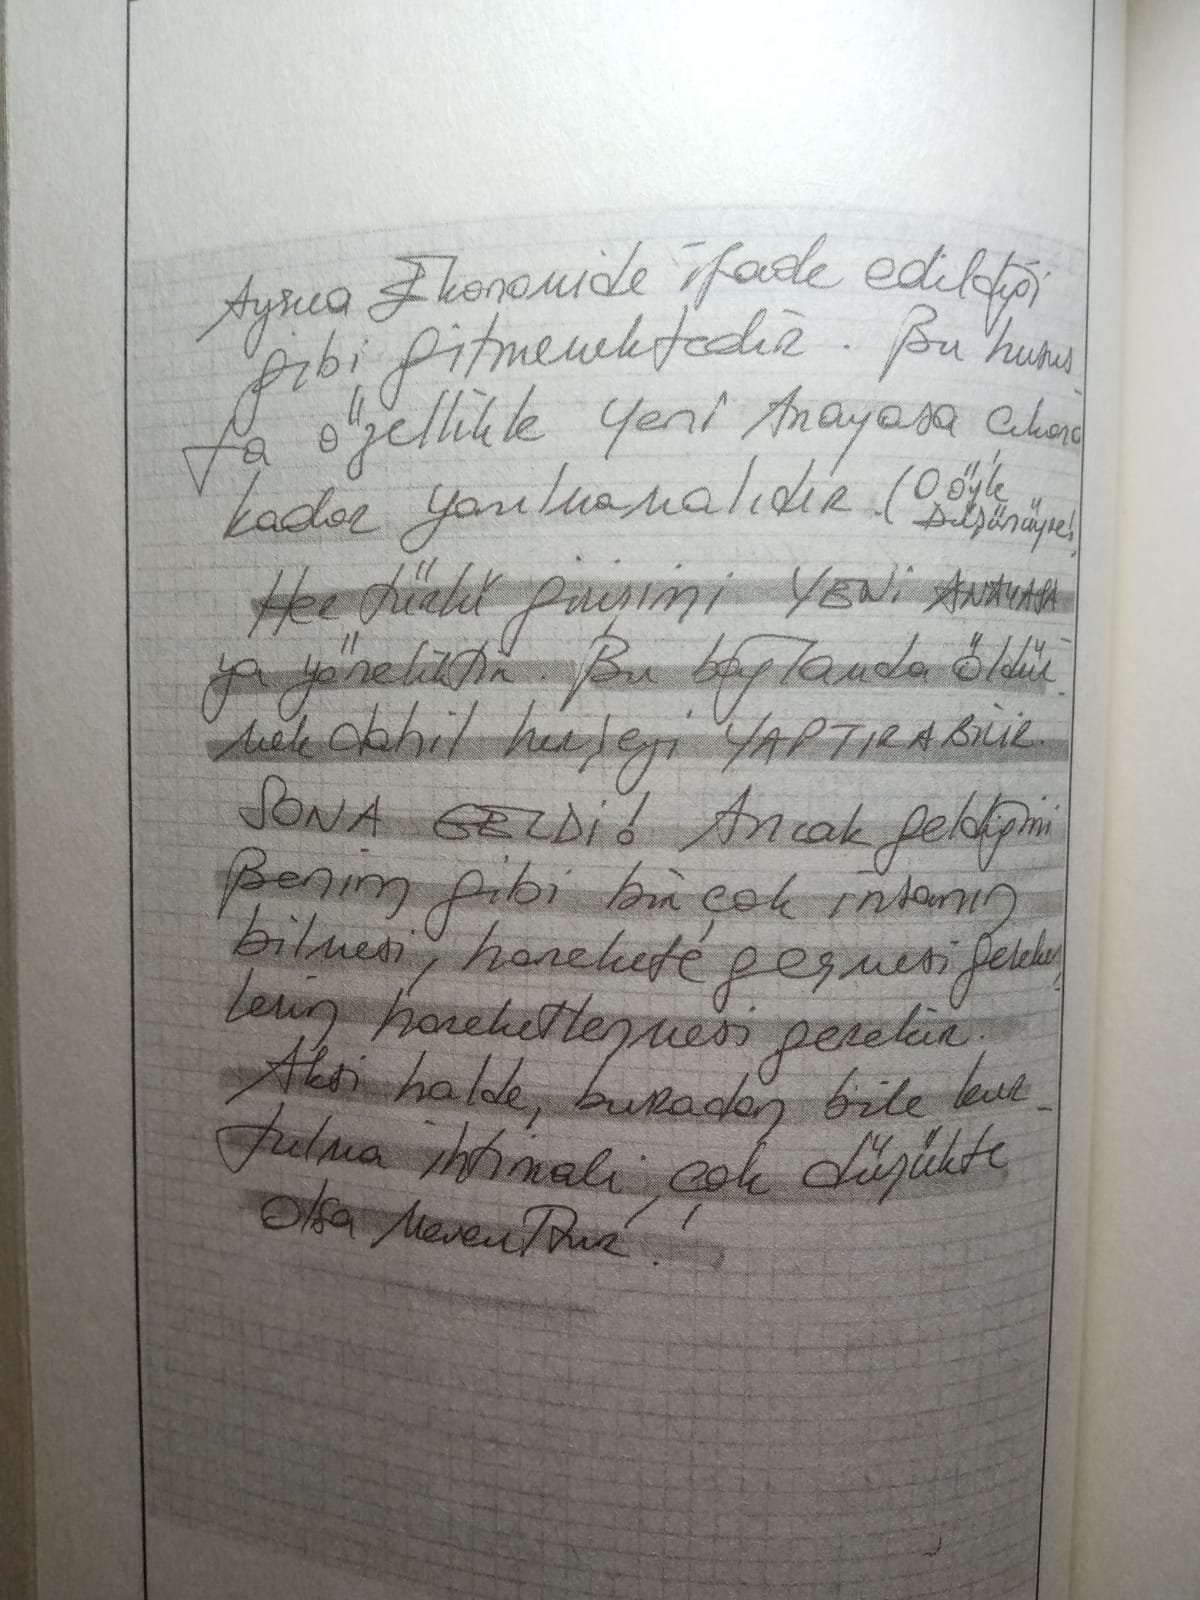 Ayrıca Ekonomide ifade edildiği
gibi gitmemektedir. Bu husus-
ta özellikle yeni Anayasa çıkana
kadar yanılmamalıdır. (O öyle
Düşünüyor!)
Her türlü girişimi YENİ ANAYASA
ya yöneliktir. Bu bağlamda öldür-
mek dahil herşeyi YAPTIRABİLİR.
SONA GELDİ! Ancak geldiğini
Benim gibi birçok insanın
bilmesi, harekete geçmesi gereken-
lerin hareketlenmesi gerekir.
Aksi halde, buradan bile kur-
tulma ihtimali, çok düşükte
olsa mevcuttur.